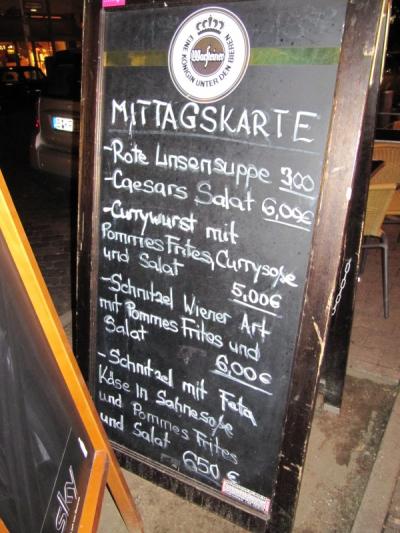 EINE KÖNIGIN UNTER DEN BIEREN
Warsteiner
MITTAGSKARTE
-Rote Linsensuppe 300
-Caesars Salat 6,00€
-Currywurst mit
Pommes Frites, Currysoße
und Salat
5,00€
-Schnitzel Wiener Art
mit Pommes Frites und
Salat
6,00€
-Schnitzel mit Feta
Käse in Sahnesoße
und Pommes Frites
und Salat 650€
sky